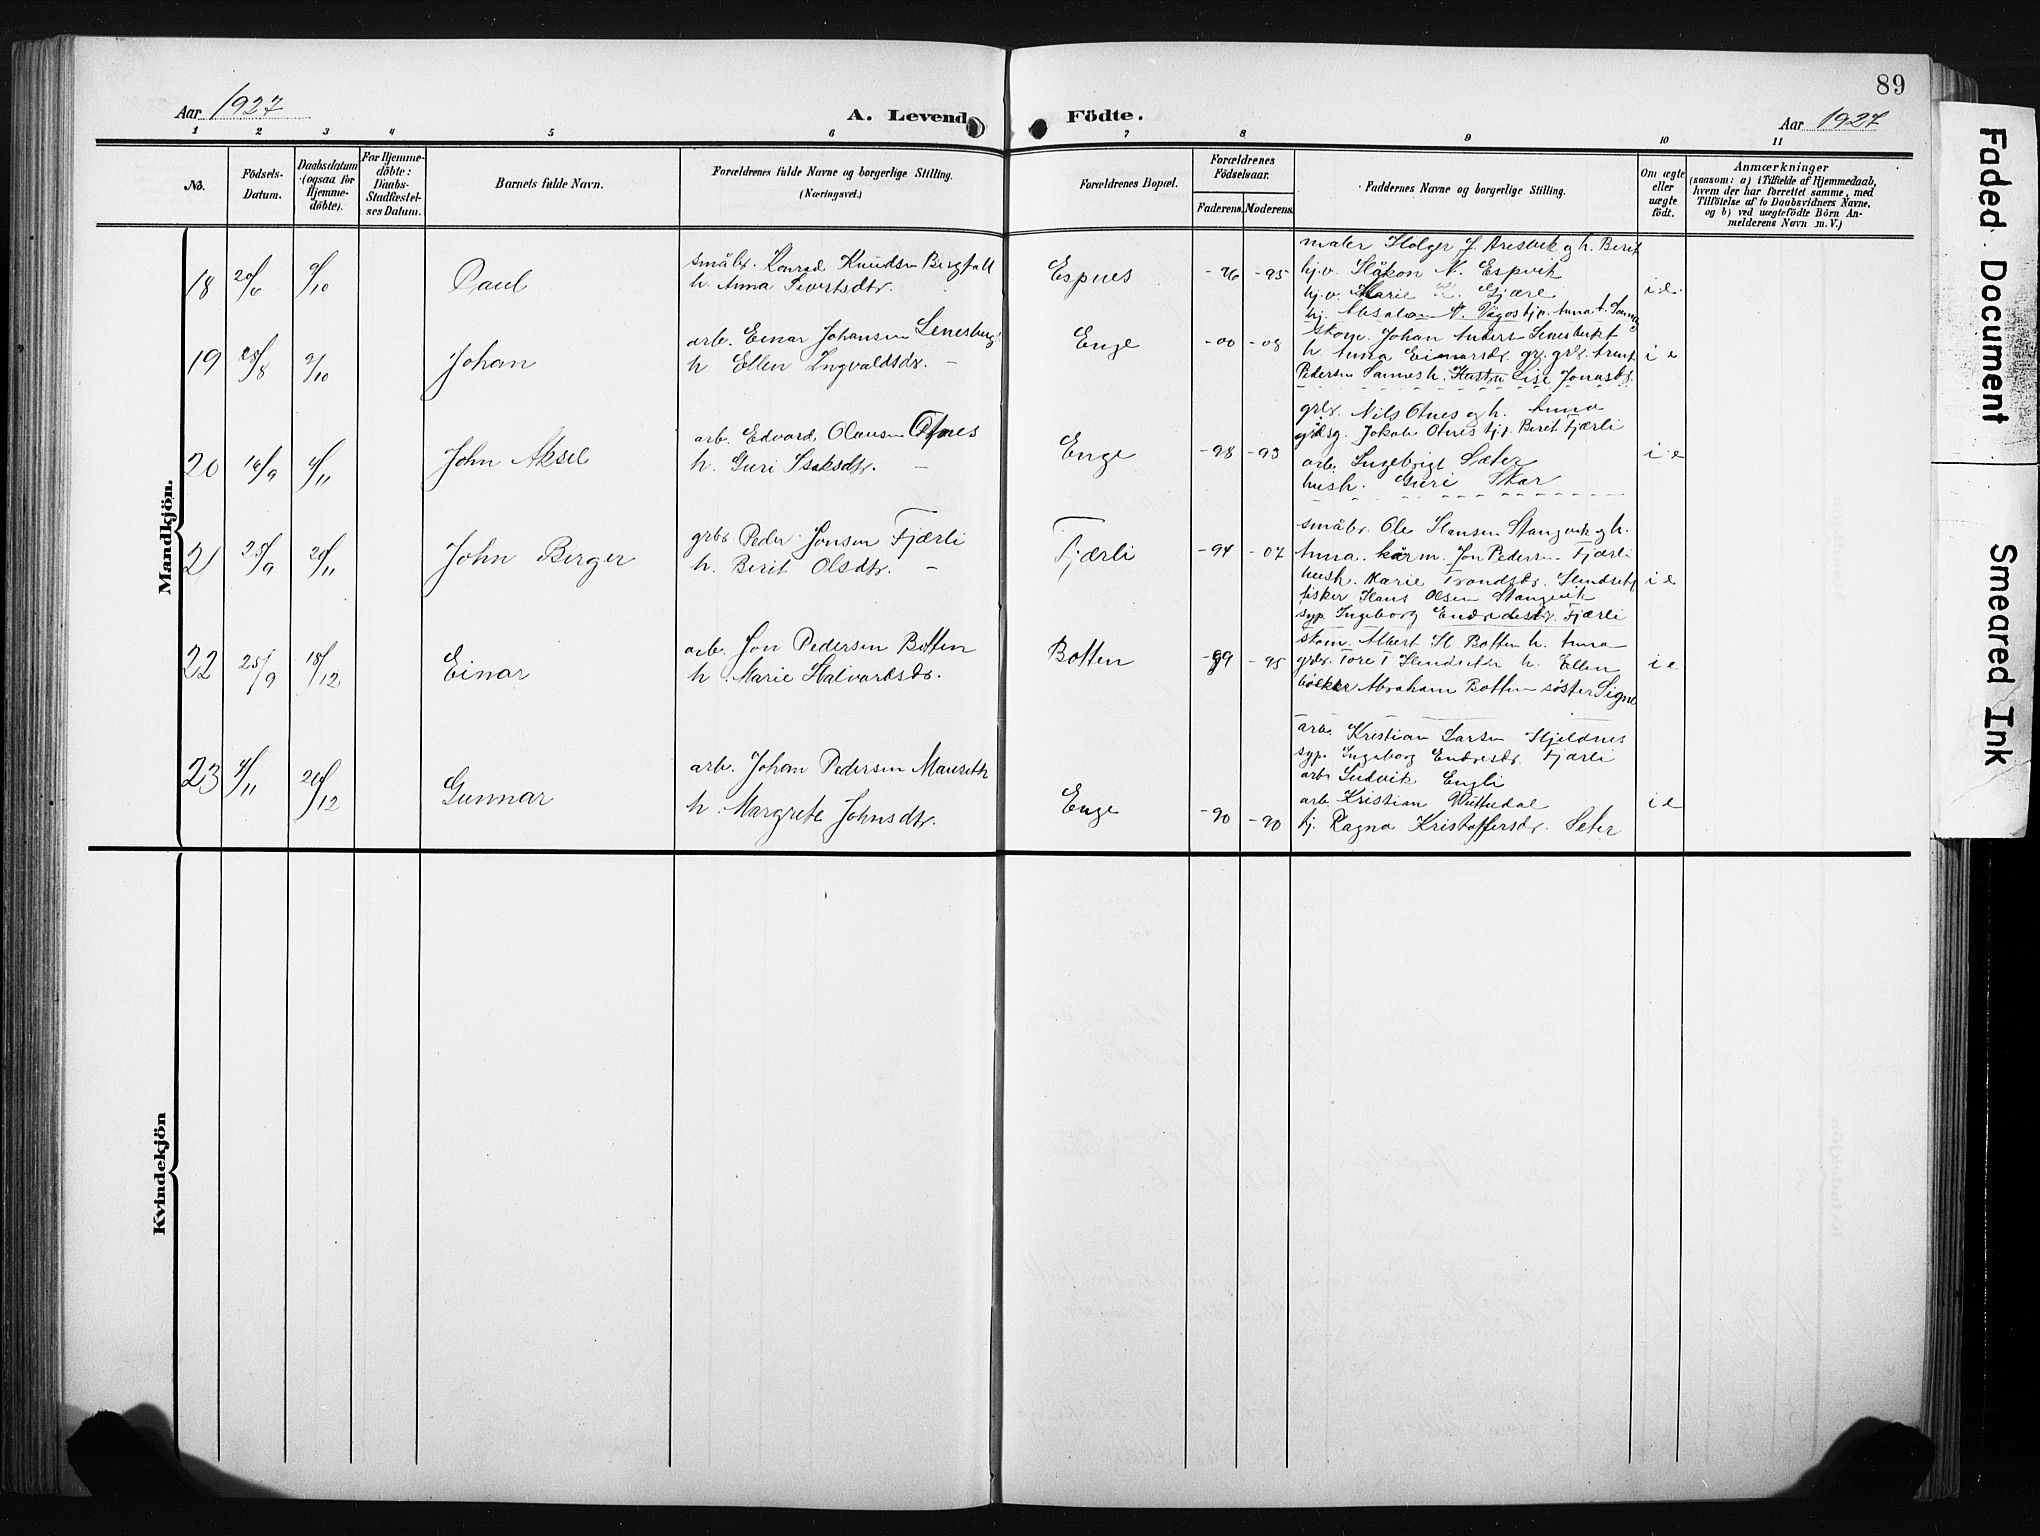 89
Aar 1927
A. Levende Födte.
Aar 1927
1 2 3 4 5 6 7 8 9 10 11
No.
Födsels-Datum.
Daabsdatum (ogsaa for Hjemme-döbte).
For Hjemme-döbte: Daabs-Stadfæstel-ses Datum.
Barnets fulde Navn.
Forældrenes fulde Navne og borgerlige Stilling.
(Næringsvei.)
Forældrenes Bopæl.
Forældrenes Födselsaar.
Faderens. Moderens.
Faddernes Navne og borgerlige Stilling.
Om ægte eller uægte födt.
Anmærkninger
(saasom: a) i Tilfælde af Hjemmedaab,
hvem der har forrettet samme, med
Tilföielse af to Daabsvidners Navne,
og b) ved uægtefödte Börn An-
melderens Navn m. V.)
Mandkjön.
18 20/6 9/10 Paul
småbr. Konrad Knudsen Bergfall
h. Anna Sivertsdtr.
Espnes -96 -95
maler Holger J. Aresvik og h. Berit
hj.v. Håkon N. Espvik
hj.v. Marie K. Gjære
i e.
19 28/8 9/10 Johan
arb. Einar Johansen
h Ellen Ingvaldsdr. -
Enge -00 -08
h Anna Einarsdr.
Pedersen Sannes h. Lise Jonasdr.
i e
20 16/9 4/11 John Aksel
arb. Edvard Olausen Otnes
h. Guri Isaksdtr. -
Enge -98 -93
grbr. Nils Otnes og h. Anna
Jakob Otnes Berit Fjærli
arb. Ingebrigt Sæter
hush. Guri Skar
i e
21 25/9 20/11 John Birger
grbr Peder Jonsen Fjærli
h. Berit Olsdtr. -
Fjærli -94 -07
småbr. Ole Hansen Stangvik og h.
Anna. kårm. Jon Pedersen Fjærli
hush. Marie Trondsdr.
fisker Hans Olsen Stangvik
syp. Ingeborg Endredsdr. Fjærli
i e
22 25/9 18/12 Einar
arb. Jon Pedersen Botten
h. Marie Halvardsdr.
Botten -99 -95
skom. Albert H. Botten h. Anna
grbr. Tore T h. Ellen
Abraham Botten søster Signe
i e
23 4/11 26/12 Gunnar
arb. Johan Pedersen Mauseth
h. Margrete Johnsdtr.
Enge -90 -90
arb. Kristian Larsen Hjeldnes
syp. Ingeborg Endresdr. Fjærli
arb. Ludvik Engli
arb. Kristian
tj. Ragna Kristoffersdr. Seter
i e
Kvindekjön
Faded Document
Smeared Ink